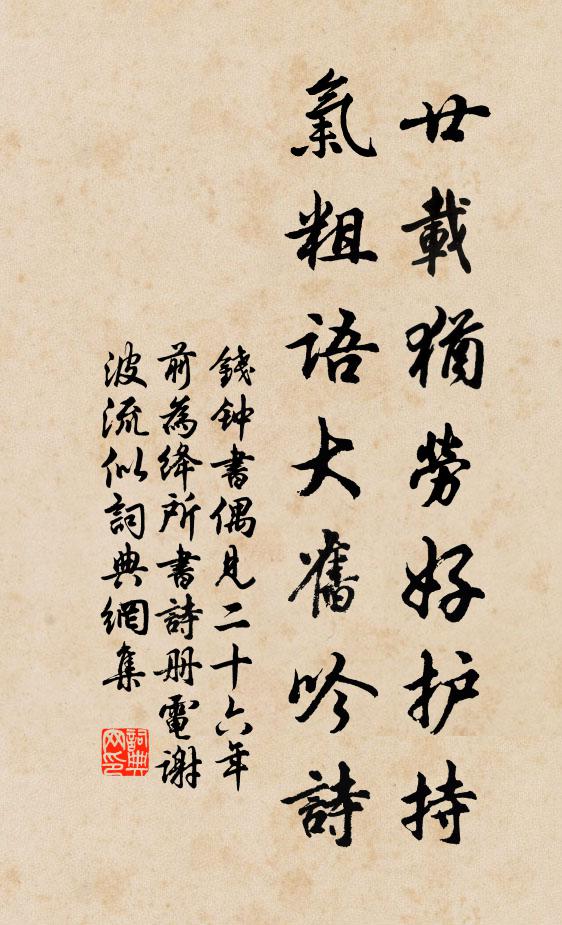 廿載猶勞好护持
氣粗語大舊吟詩
錢钟書偶見二十六年
前為絳所書詩册電謝
波流似詞典網集
詞典
网印